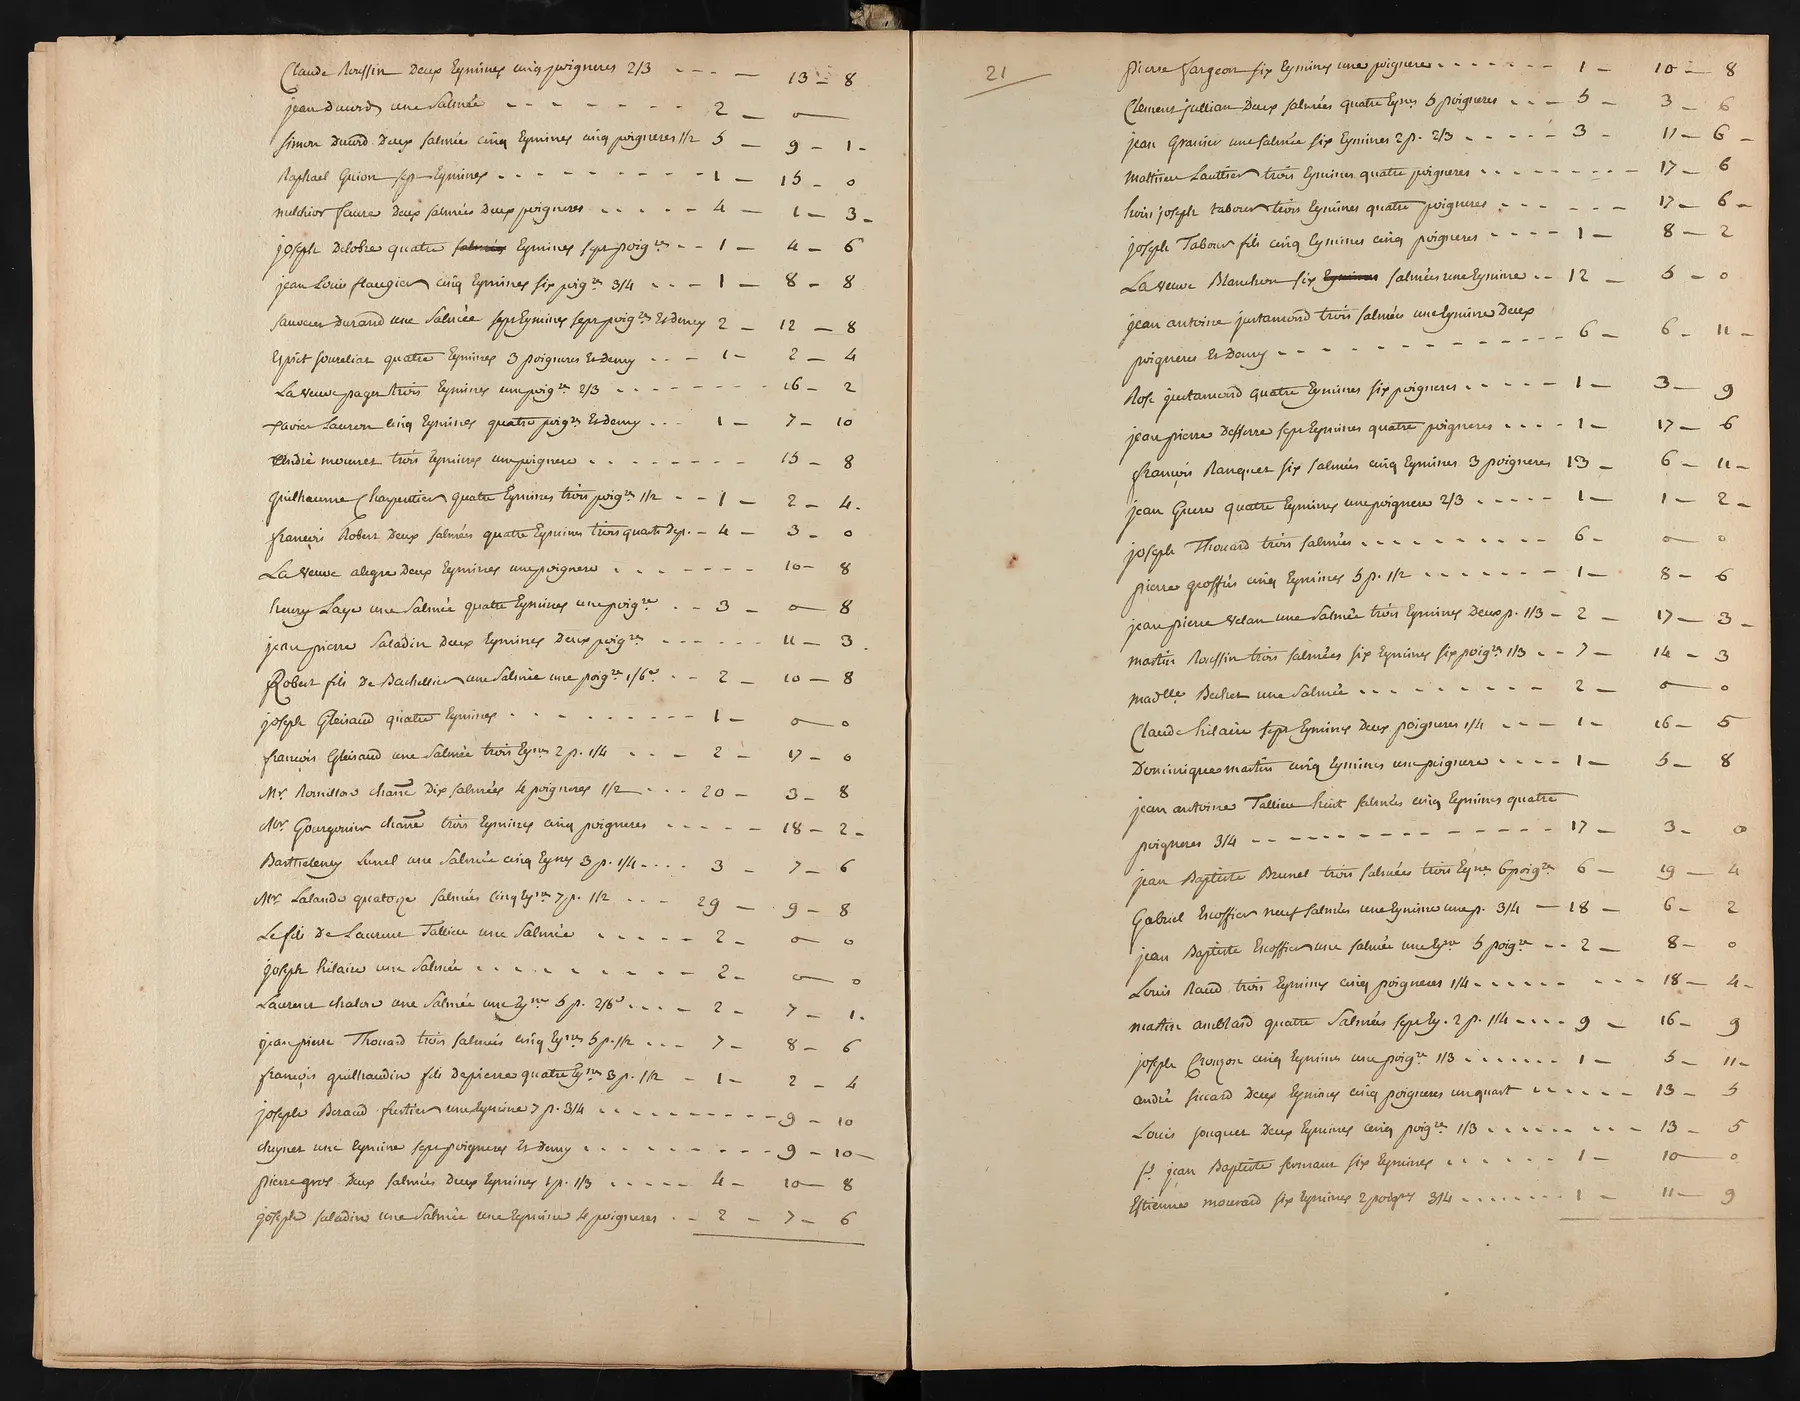 Claude Roussin Deux Eymines cinq poigneres 2/3 - - - - 13 - 8
jean Durand une Salmée - - - - - - - 2 - 0
Simon Durand Deux salmée cinq Eymines cinq poigneres 1/2 5 - 9 - 1 -
Raphael Guion sep Eymines - - - - - - - - - 1 - 15 - 0
melchior faure Deux salmées Deux poigneres - - - - - 4 - 1 - 3 -
joseph Delobre quatre salmées Eymines sept poig.res - - 1 - 4 - 6
jean Louis flaugier cinq Eymines six poig.res 3/4 - - - 1 - 8 - 8
sauveur Durand une Salmée sept Eymines sept poig.res Et Demy 2 - 12 - 8
Esprit soureliat quatre Eymines 3 poigneres Et Demy - - - 1 - 2 - 4
La veuve pager trois Eymines une poig.re 2/3 - - - - - - - - 16 - 2
xavier Lauron cinq Eymines quatre poig.res Et Demy - - - 1 - 7 - 10
André mouret trois Eymines une poignere - - - - - - - - 15 - 8
guilhaume Charpentier quatre Eymines trois poig.res 1/2 - - 1 - 2 - 4.
françois Robert Deux salmées quatre Eymines trois quarts De p. - 4 - 3 - 0
La veuve alegre Deux Eymines une poignere - - - - - - - 10 - 8
henry Laye une Salmée quatre Eymines une poig.re - - 3 - 0 - 8
jean pierre Saladin Deux Eymines Deux poig.res - - - - - - 11 - 3.
Robert fils De Bachellier une Salmée une poig.re 1/6e - - 2 - 10 - 8
joseph Gleisaud quatre Eymines - - - - - - - - - 1 - 0 - 0
françois Gleisaud une Salmée trois Eym.es 2 p. 1/4 - - - 2 - 17 - 0
Mr. Romillon chan.e Dix salmées 4 poigneres 1/2 - - - 20 - 3 - 8
Mr. Gourgonier chan.e trois Eymines cinq poigneres - - - - - 18 - 2 -
Barthelemy Lunel une Salmée cinq Eymes 3 p. 1/4 - - - - 3 - 7 - 6
Mr. Lalande quatorze salmées cinq Ey.nes 7 p. 1/2 - - - 29 - 9 - 8
Le fils De Laurent Tallieu une Salmée - - - - - 2 - 0 - 0
joseph hilaire une Salmée - - - - - - - - - 2 - 0 - 0
Laurent chalon une Salmée une Ey.ne 5 p. 2/6e - - - - 2 - 7 - 1.
jean pierre Thouard trois salmées cinq Ey.nes 5 p. 1/2 - - - 7 - 8 - 6
françois guilhaudin fils De pierre quatre Ey.nes 3 p. 1/2 - 1 - 2 - 4
joseph Beraud fustier une Eymine 7 p. 3/4 - - - - - - - - - - 9 - 10
une Eymine sept poigneres Et Demy - - - - - - - - - 9 - 10 -
pierre gros Deux salmées Deux Eymines 1 p. 1/3 - - - - - 4 - 10 - 8
joseph saladin une Salmée une Eymine 4 poigneres - - 2 - 7 - 6
21
pierre fargeon six Eymines une poignere - - - - - - - 1 - 10 - 8
Clement jullian Deux salmées quatre Eym.es 5 poigneres - - - 5 - 3 - 6
jean Granier une salmée six Eymines 2 p. 2/3 - - - - - 3 - 11 - 6 -
Matthieu Lauttier trois Eymines quatre poigneres - - - - - - - - 17 - 6
hoirs joseph tabour trois Eymines quatre poigneres - - - - - - 17 - 6 -
joseph Tabour fils cinq Eymines cinq poigneres - - - - 1 - 8 - 2
La veuve Blanchon six Eymines salmées une Eymine - - 12 - 5 - 0
jean antoine justamond trois salmées une Eymine Deux
poigneres Et Demy - - - - - - - - - - - - 6 - 6 - 11 -
Rose justamond quatre Eymines six poigneres - - - - - 1 - 3 - 9
jean pierre Defferre sept Eymines quatre poigneres - - - - 1 - 17 - 6
françois Ranquet six salmées cinq Eymines 3 poigneres 13 - 6 - 11 -
jean Guere quatre Eymines une poignere 2/3 - - - - - 1 - 1 - 2 -
joseph Thouard trois salmées - - - - - - - - - - 6 - 0 - 0
pierre geoffris cinq Eymines 5 p. 1/2 - - - - - - 1 - 8 - 6
jean pierre velan une Salmée trois Eymines Deux p. 1/3 - 2 - 17 - 3 -
martin Roussin trois salmées six Eymines six poig.res 1/3 - - 7 - 14 - 3
mad.lle Bechet une Salmée - - - - - - - - - 2 - 0 - 0
Claude hilaire sept Eymines Deux poigneres 1/4 - - - 1 - 16 - 5
Dominique martin cinq Eymines une poignere - - - - 1 - 5 - 8
jean antoine Tallieu huit salmées cinq Eymines quatre
poigneres 3/4 - - - - - - - - - - - - - 17 - 3 - 0
jean Baptiste Brunel trois salmées trois Eym.es 6 poig.res 6 - 19 - 4
Gabriel Escoffier neuf salmées une Eymine une p. 3/4 - 18 - 6 - 2
jean Baptiste Escoffier une salmée une Eym.e 5 poig.re - - 2 - 8 - 0
Louis Raud trois Eymines cinq poigneres 1/4 - - - - - - - - - 18 - 4 -
martin amblard quatre Salmées sept Ey. 2 p. 1/4 - - - - 9 - 16 - 9
joseph Crouzon cinq Eymines une poig.re 1/3 - - - - - - 1 - 5 - 11 -
andré sicard Deux Eymines cinq poigneres un quart - - - - - 13 - 5
Louis jouquet Deux Eymines cinq poig.res 1/3 - - - - - - - - 13 - 5
sr. jean Baptiste fermaut six Eymines - - - - - - 1 - 10 - 0
Estienne mourard six Eymines 2 poigres 3/4 - - - - - - 1 - 11 - 9